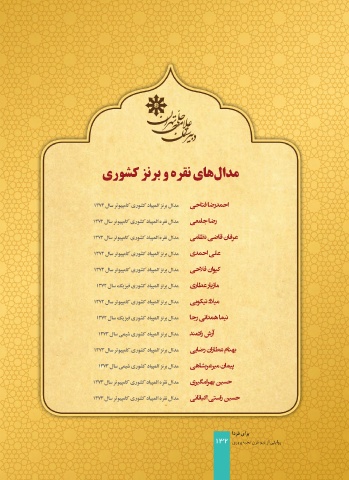 دبیرستان علامه حلی تهران
مدال‌های نقره و برنز کشوری
احمدرضا فتاحی مدال برنز المپیاد کشوری کامپیوتر سال ۱۳۷۲
رضا جامعی مدال نقره المپیاد کشوری کامپیوتر سال ۱۳۷۳
عرفان قاضی نظامی مدال نقره المپیاد کشوری کامپیوتر سال ۱۳۷۳
علی احمدی مدال برنز المپیاد کشوری کامپیوتر سال ۱۳۷۳
کیوان فلاحی مدال برنز المپیاد کشوری کامپیوتر سال ۱۳۷۳
مازیار عطاری مدال برنز المپیاد کشوری فیزیک سال ۱۳۷۳
میلاد نیکویی مدال برنز المپیاد کشوری کامپیوتر سال ۱۳۷۳
نیما همدانی رجا مدال نقره المپیاد کشوری فیزیک سال ۱۳۷۳
آرش زادمند مدال برنز المپیاد کشوری شیمی سال ۱۳۷۳
بهنام عطاران رضایی مدال برنز المپیاد کشوری کامپیوتر سال ۱۳۷۳
پیمان میرعرشاهی مدال برنز المپیاد کشوری شیمی سال ۱۳۷۳
حسین بهرامگیری مدال نقره المپیاد کشوری کامپیوتر سال ۱۳۷۳
حسین راستی الیقانی مدال نقره المپیاد کشوری کامپیوتر سال ۱۳۷۳
برای فردا
۱۳۲